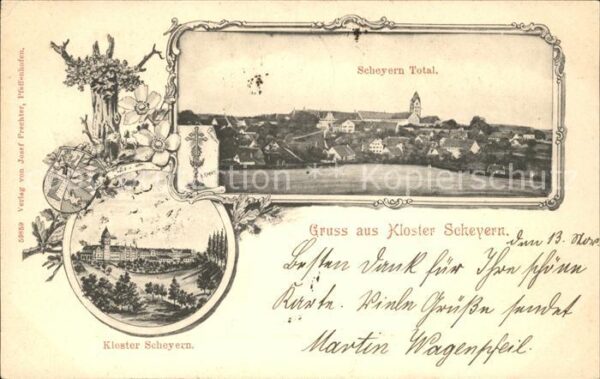 Scheyern Total.
59859 Verlag von Josef Prechter, Pfaffenhofen.
Gruss aus Kloster Scheyern.
den 13. Nov.
Besten Dank für Ihre schöne
Karte. Viele Grüße sendet
Martin Wagenpfeil.
Kloster Scheyern.